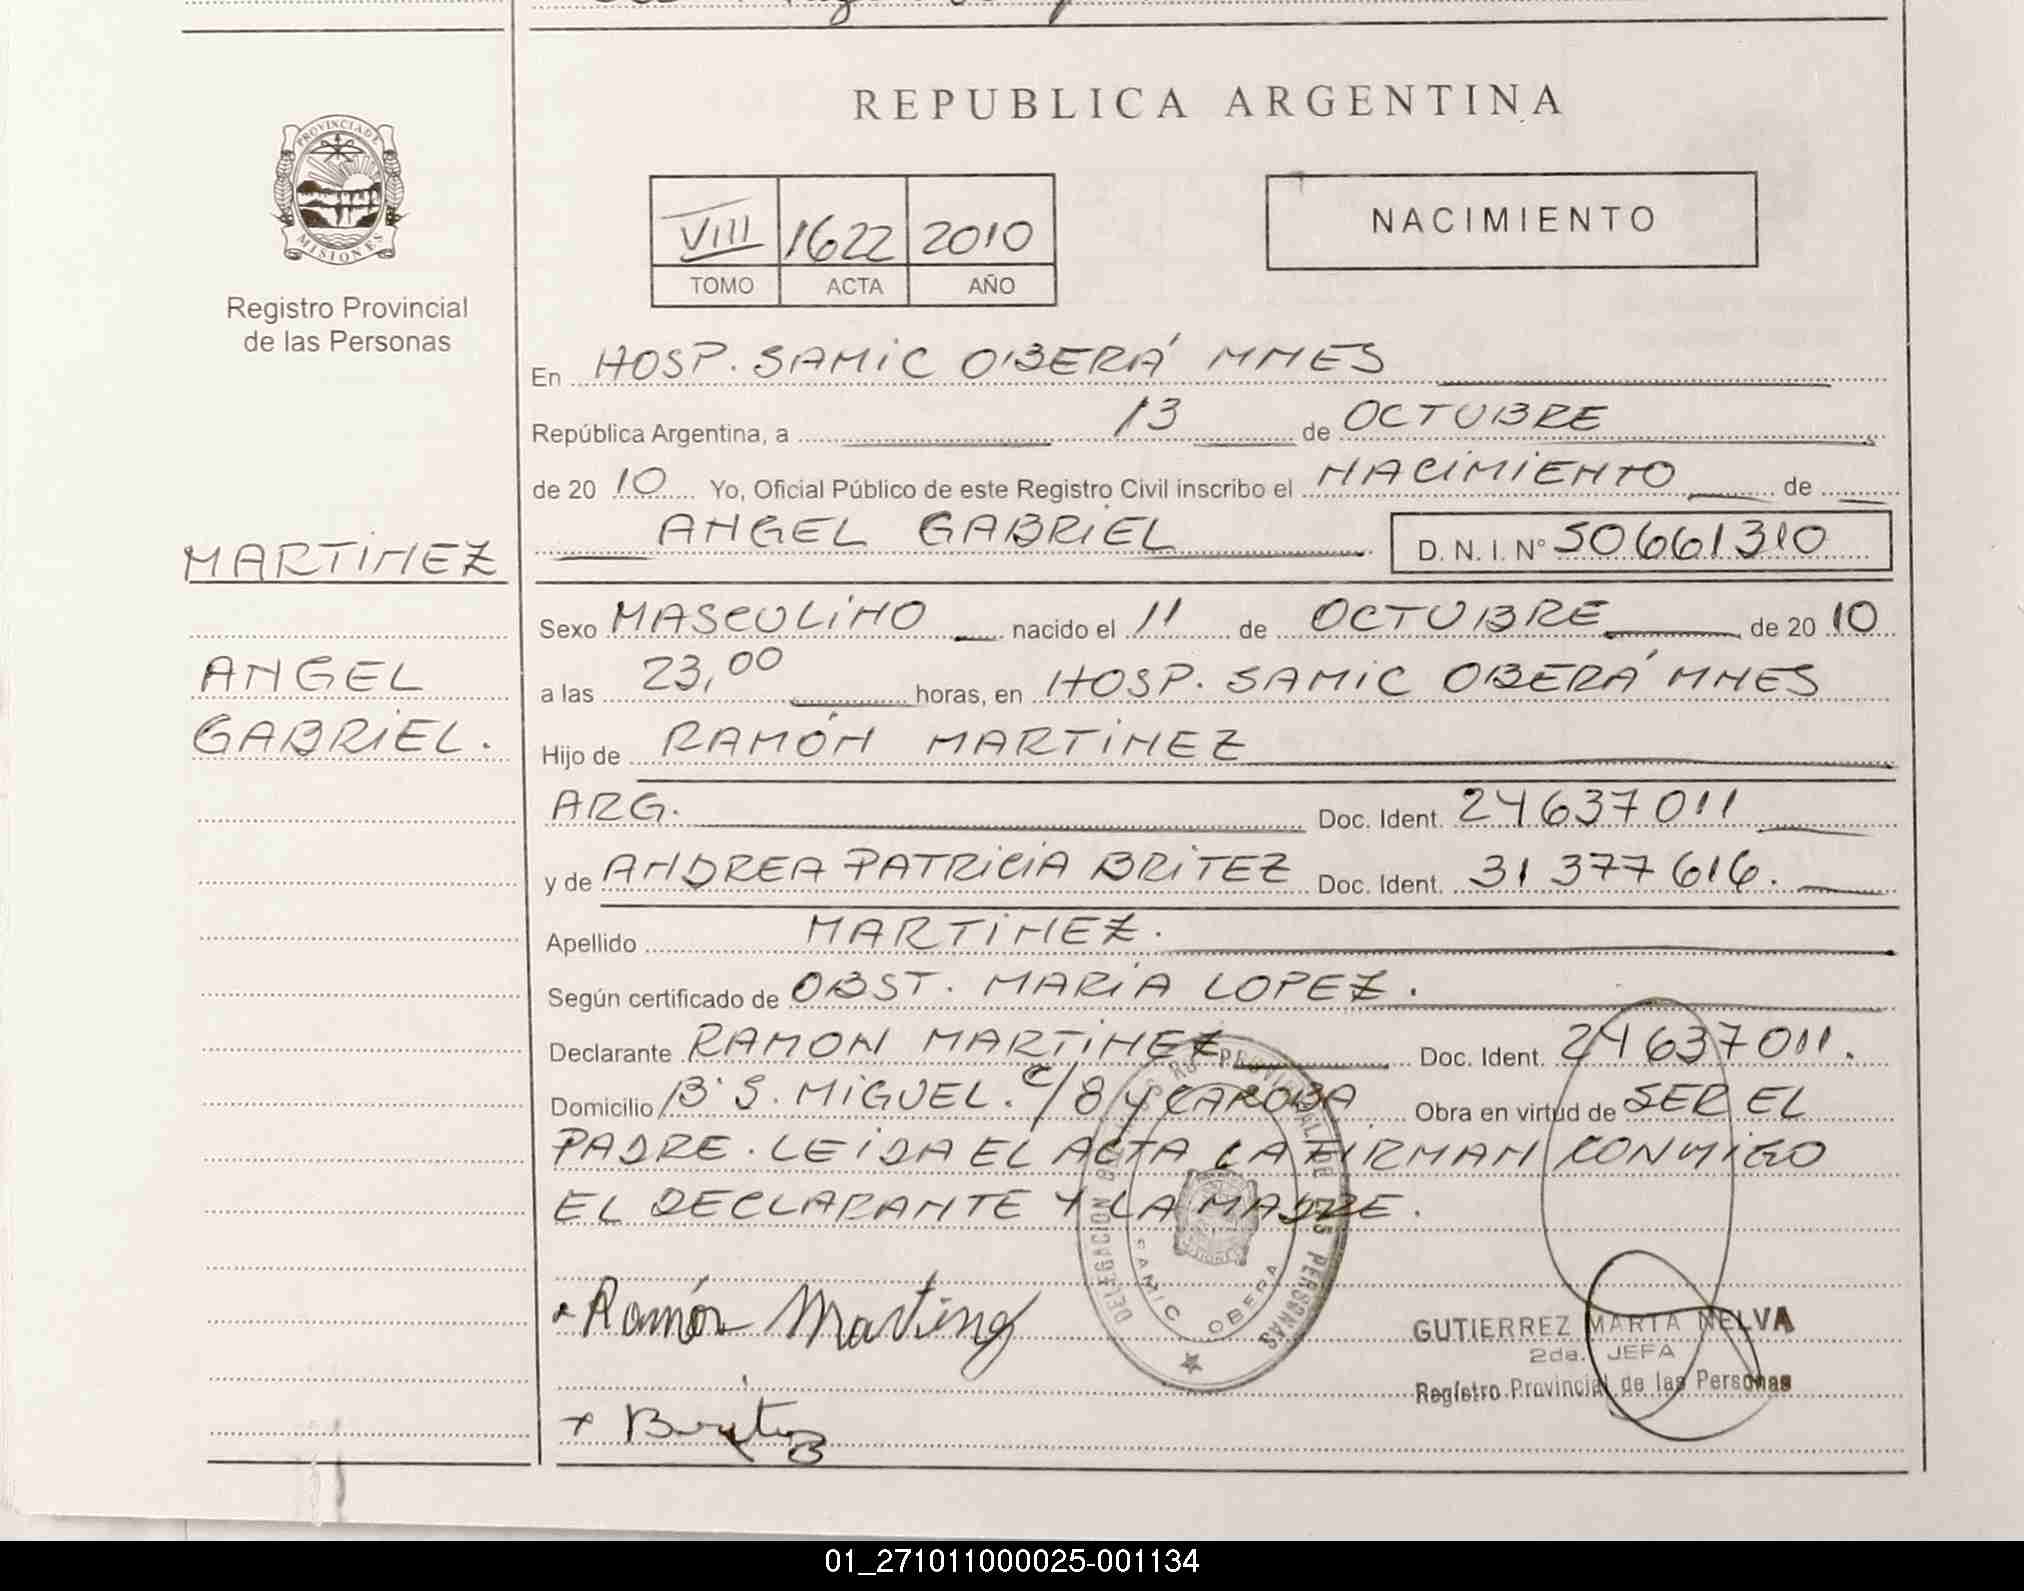 REPUBLICA ARGENTINA
PROVINCIA DE
MISIONES
Registro Provincial
de las Personas
VIII 1622 2010
TOMO ACTA AÑO
NACIMIENTO
En HOSP. SAMIC OBERÁ MNES
República Argentina, a 13 de OCTUBRE
de 2010 Yo, Oficial Público de este Registro Civil inscribo el NACIMIENTO de
ANGEL GABRIEL D. N. I. N° 50661310
MARTINEZ
ANGEL
GABRIEL.
Sexo MASCULINO nacido el 11 de OCTUBRE de 2010
a las 23,00 horas, en HOSP. SAMIC OBERÁ MNES
Hijo de RAMÓN MARTINEZ
ARG. Doc. Ident. 24637011
y de ANDREA PATRICIA BRITEZ Doc. Ident. 31377616.
Apellido MARTINEZ.
Según certificado de OBST. MARIA LOPEZ.
Declarante RAMON MARTINEZ Doc. Ident. 24637011.
Domicilio B° S. MIGUEL. C/8 y CAROBA Obra en virtud de SER EL
PADRE. LEIDA EL ACTA LA FIRMAN CONMIGO
EL DECLARANTE Y LA MADRE.
DELEGACION PROVINCIAL DE LAS PERSONAS
SAMIC OBERA
Ramón Martinez
Britez
GUTIERREZ MARTA NELVA
2da. JEFA
Registro Provincial de las Personas
01_271011000025-001134